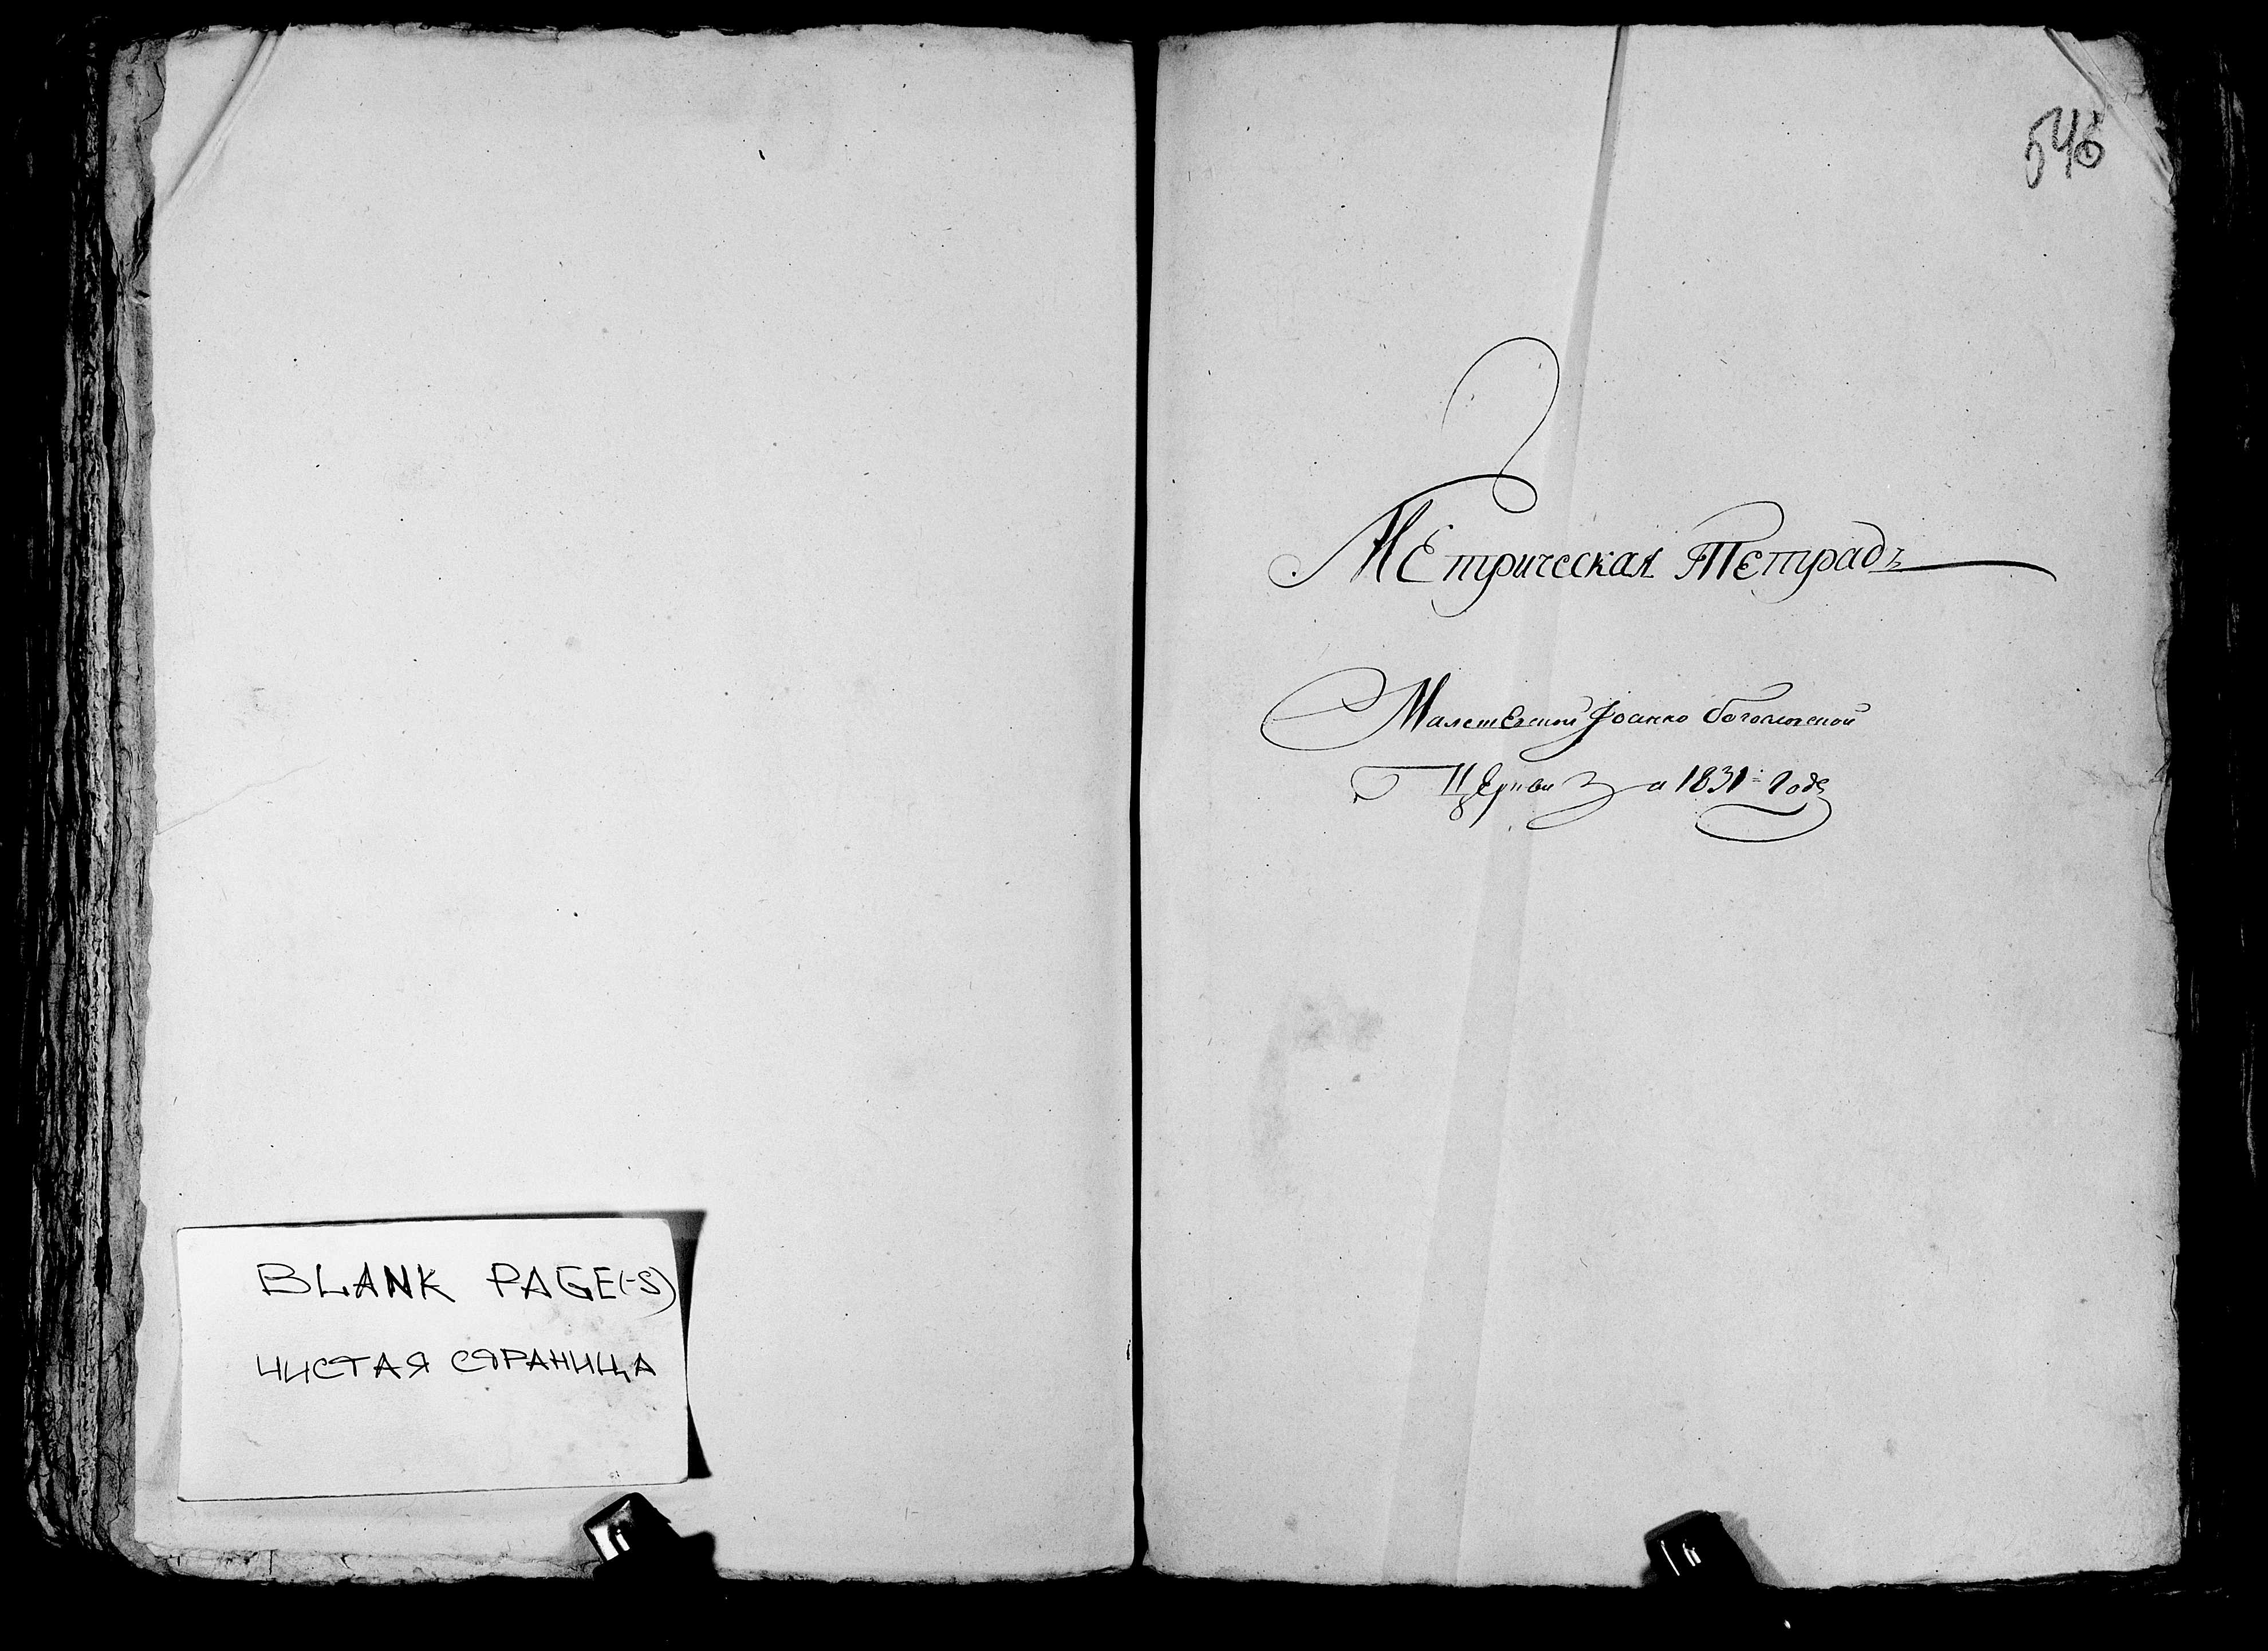 BLANK PAGE(-S)
ЧИСТАЯ СТРАНИЦА
546
Метрическая Тетрадь
Иоанно Богословской
Церкви За 1831 Года